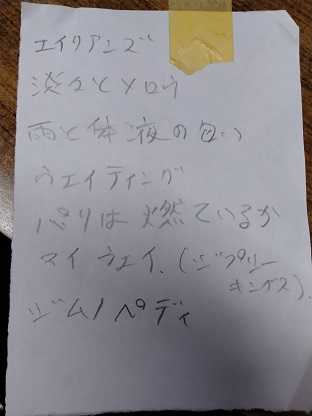 エイリアンズ
淡々とメロウ
雨と体液の匂い
ウエイティング
パリは燃ているか
マイ ウェイ.(ジプリー
キングス).
ジムノペディ